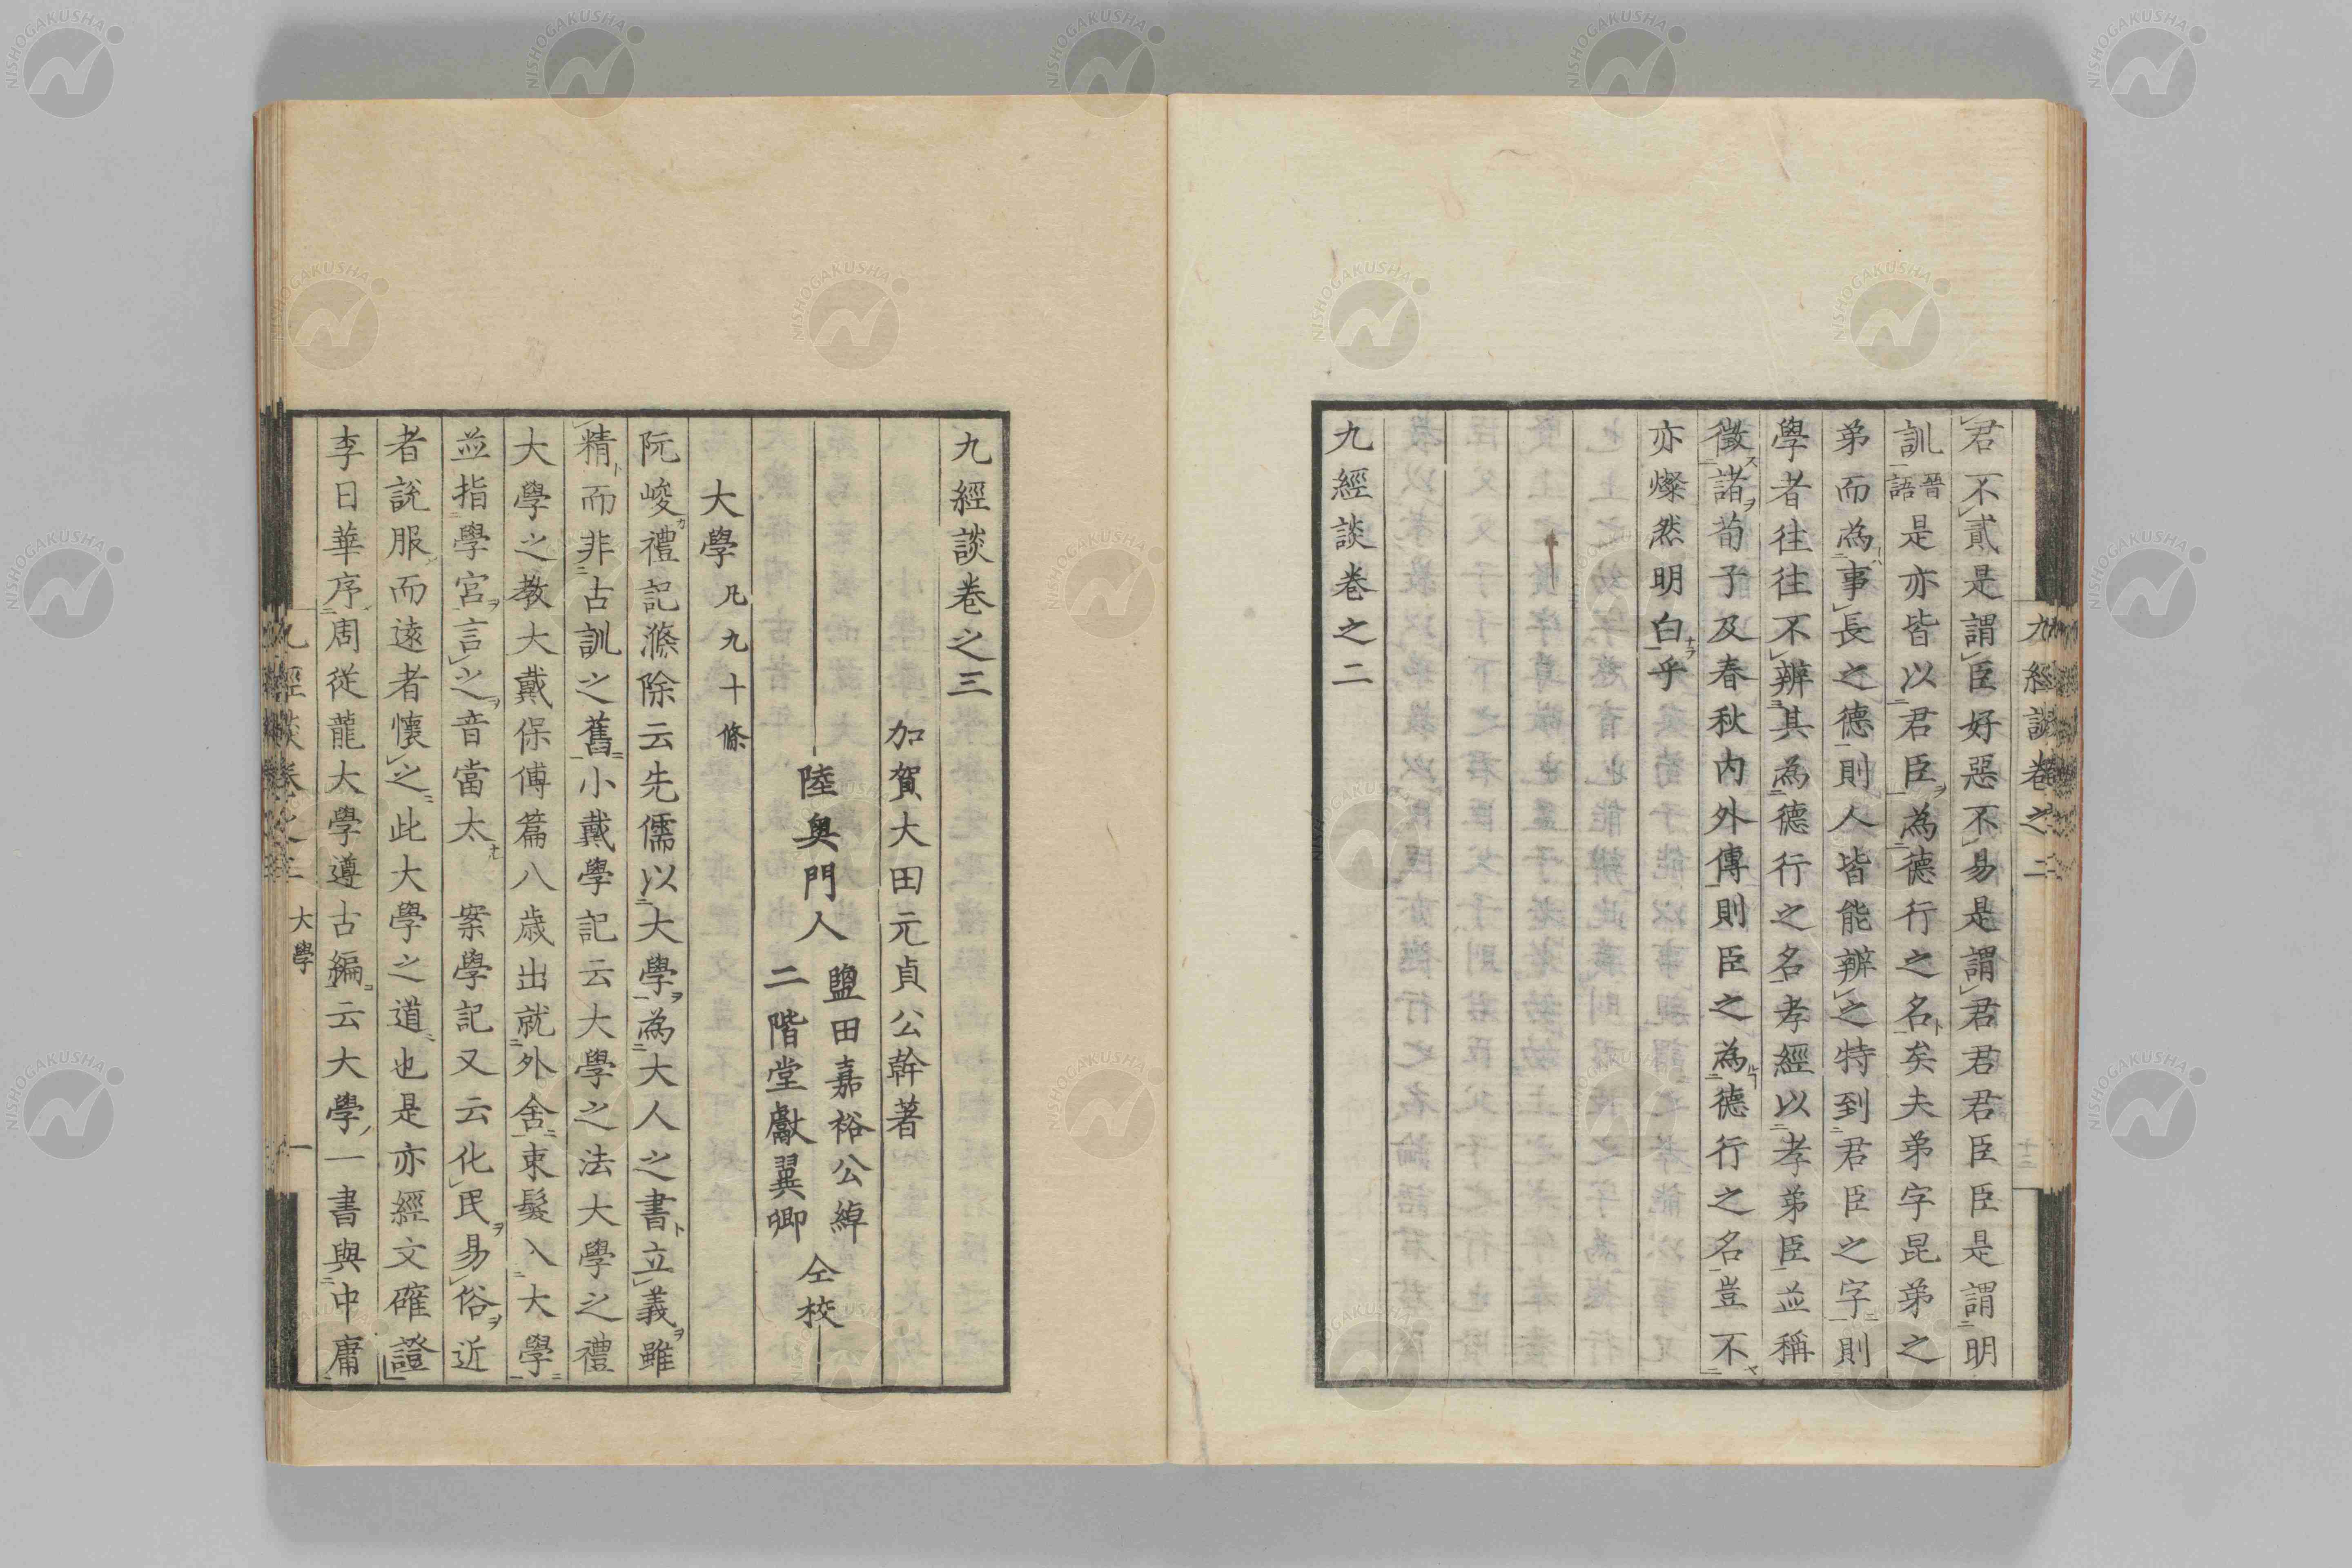 君不貳是謂臣好惡不易是謂君君君臣臣是謂明
訓晉語是亦皆以君臣為德行之名矣夫弟字昆弟之
弟而為事長之德則人皆能辨之特到君臣之字則
學者往往不辨其為德行之名孝經以孝弟臣並稱
徵諸荀子及春秋內外傳則臣之為德行之名豈不
亦燦然明白乎
九經談卷之二
九經談卷之二
九經談卷之三
加賀大田元貞公幹著
陸奧門人
鹽田嘉裕公綽
二階堂獻翼卿
仝校
大學凡九十條
阮峻禮記滌除云先儒以大學為大人之書立義雖
精而非古訓之舊小戴學記云大學之法大學之禮
大學之教大戴保傅篇八歲出就外舍束髮入大學
並指學宮言之音當太 案學記又云化民易俗近
者說服而遠者懷之此大學之道也是亦經文確證
李日華序周從龍大學遵古編云大學一書與中庸
九經談卷之三 大學 一
NISHOGAKUSHA